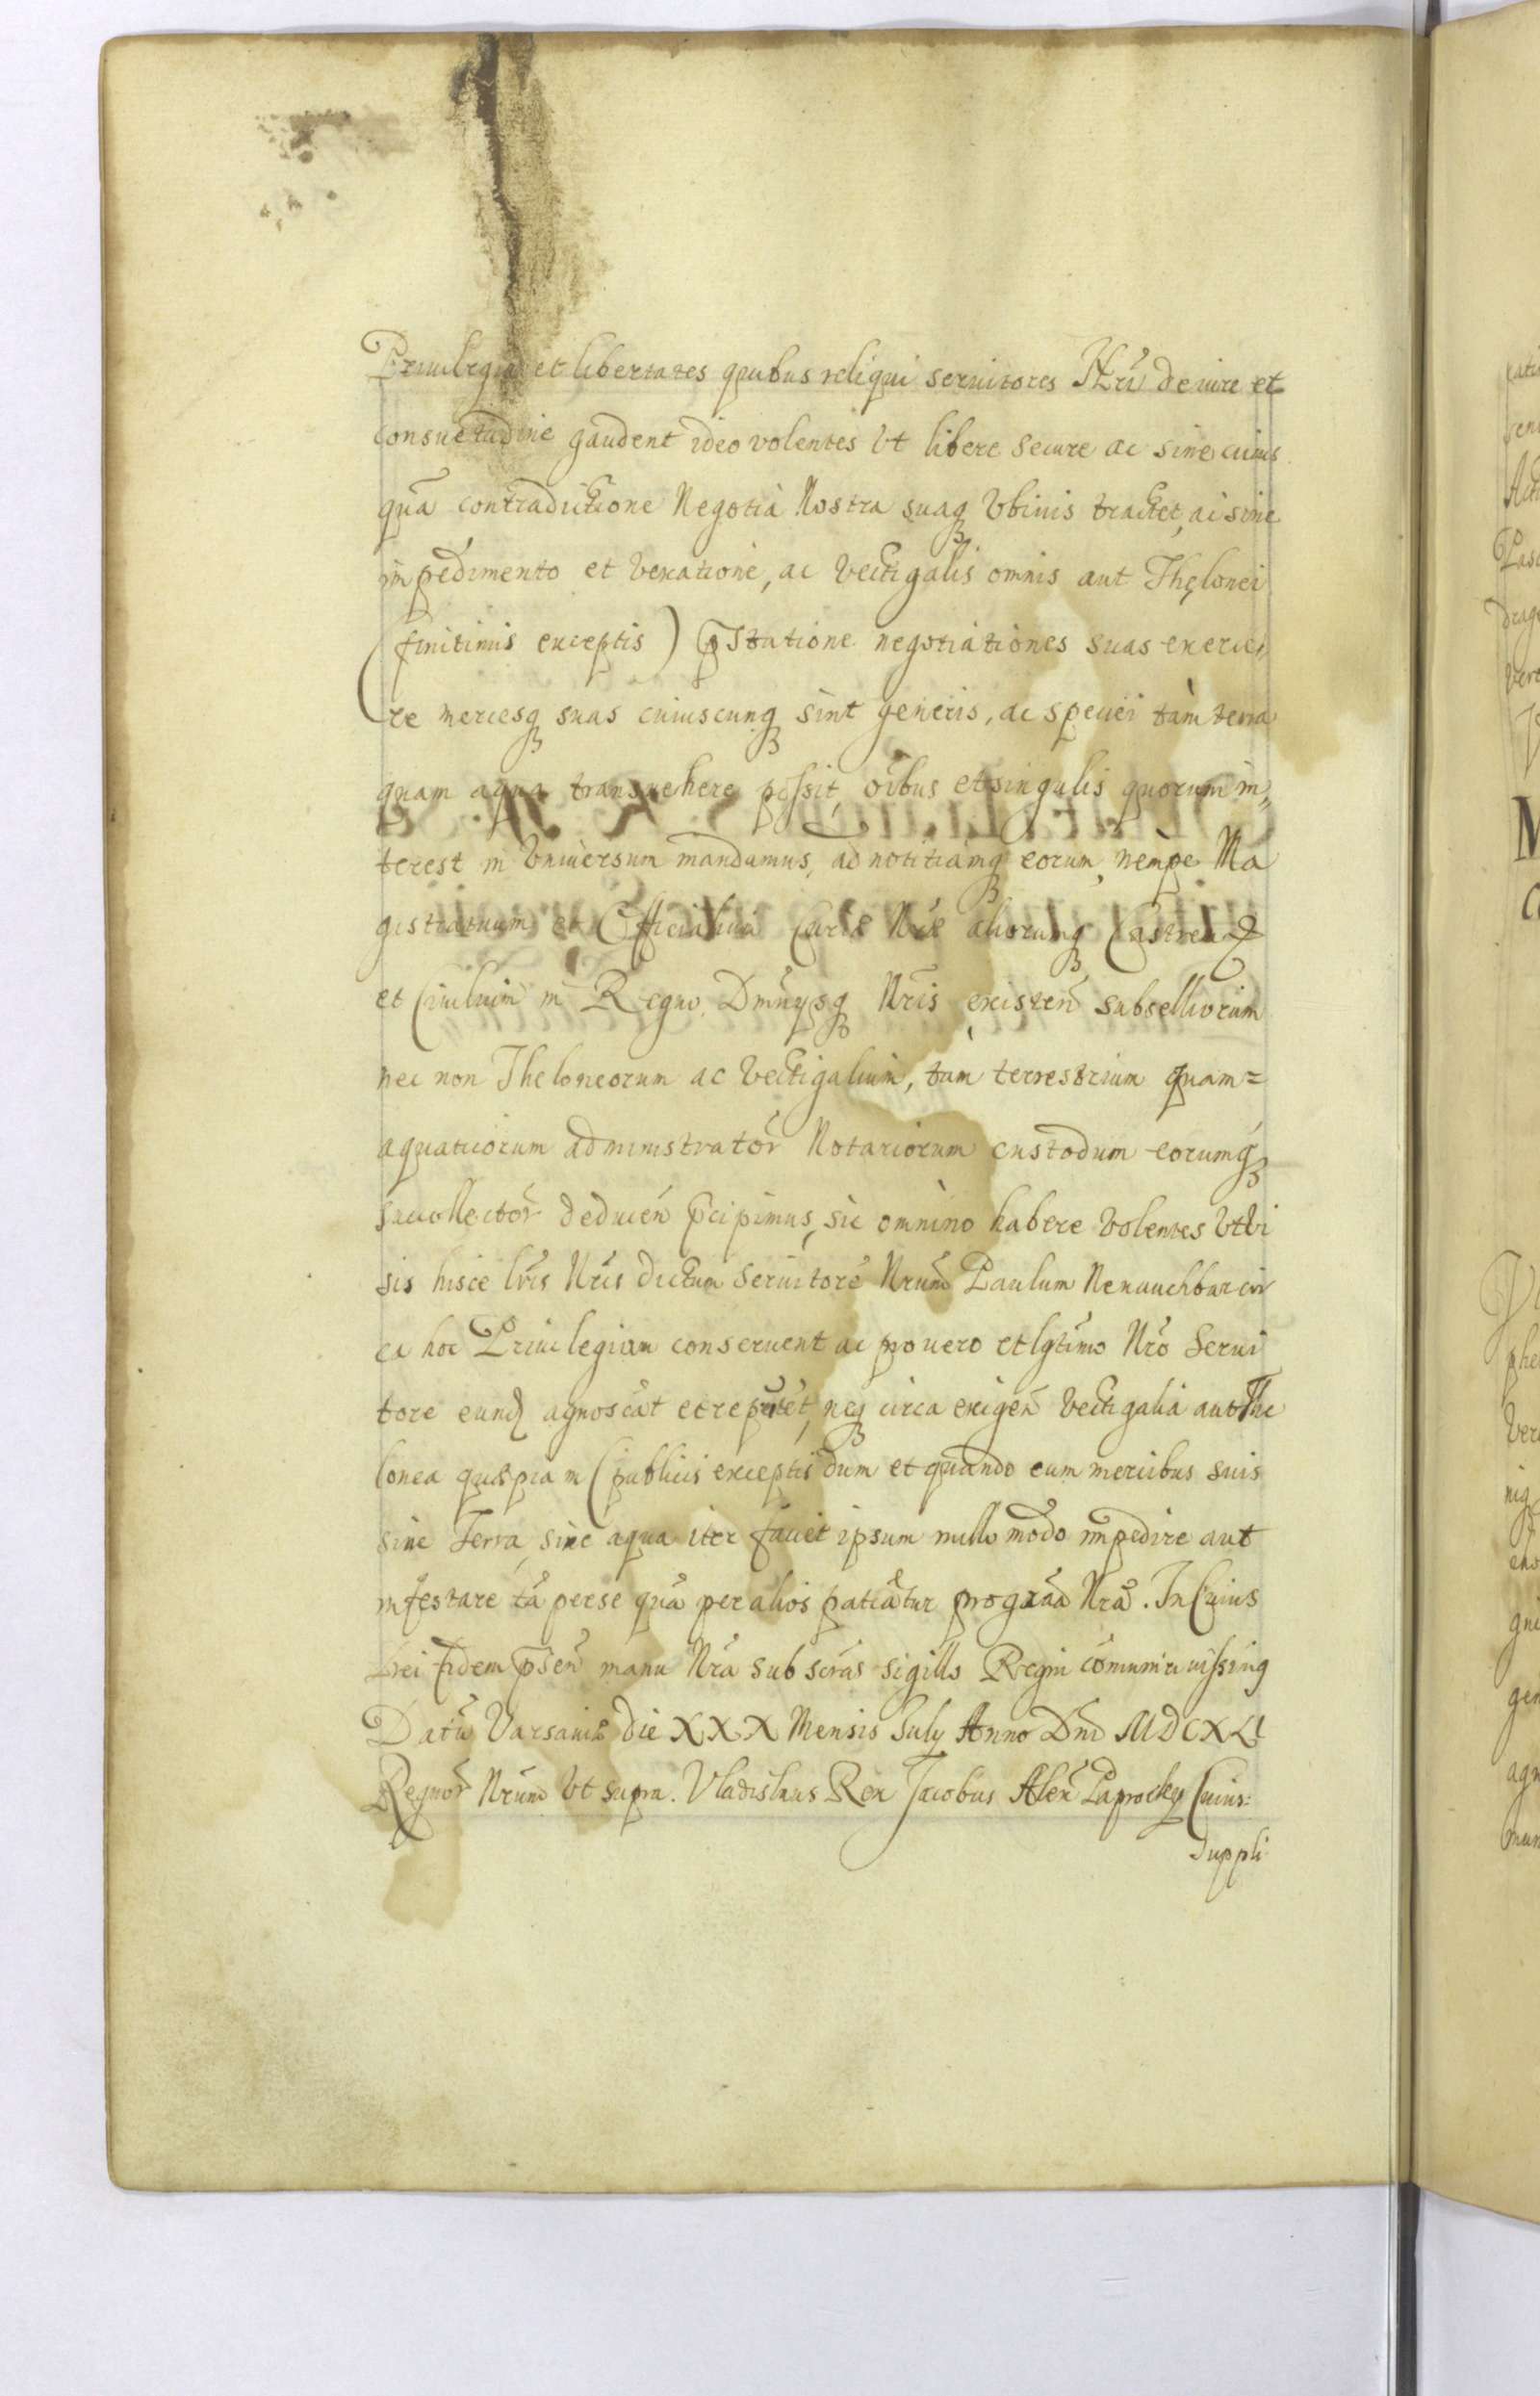 Priuilegia et libertates quibus reliqui seruitores Nri de iure et
consuetudine gaudent ideo volentes Vt libere secure ac sine cuius
quã contradictione Negotia Nostra suaq Vbiuis tractet, ac sine
impedimento et vexatione, ac Vectigalis omnis aut Thelonei
(finitimis exceptis) pstatione negotiationes suas exerce,
re mercesq suas cuiuscunq sint generis, ac speciei tàm terra
quam aqua transuehere possit, oibus et singulis quorum in,
terest in Vniuersum mandamus, ad notitiamq eorum, nempe Ma
gistratuum et Officialium Curiæ Nræ aliorumq Castren
et Ciuiluim in Regno Dmnysq Nris existen subselliorum
nec non Theloneorum ac Vectigalium, tam terrestrium quam=
aquaticorum administrator Notariorum custodum eorumq
succollector deducen pcipimus, sic omnino habere Volentes Vt Vi
sis hisce lris Nris dictum seruitore Nrum Paulum
ca hoc Priuilegium conseruent ac pro uero et lgtimo Nro Serui
tore eund agnoscãt et reputet, neq circa exigen Vectigalia aut The
lonea quæpiam (publicis exceptis dum et quando cum mercibus suis
siue Terra, siue aqua iter faciet ipsum nullo modo impedire aut
infestare tã per se quã per alios patiatur pro grãa Nrã. In Cuius
rei fidem psen manu Nra subscras sigillo Regni cõmuniri iussimq
Datũ Varsauiæ die XXX Mensis July Anno Dni MDCXLI
Regnor Nrum Vt supra. Vladislaus Rex Jacobus Alex Paprocky Cuius:
Suppli